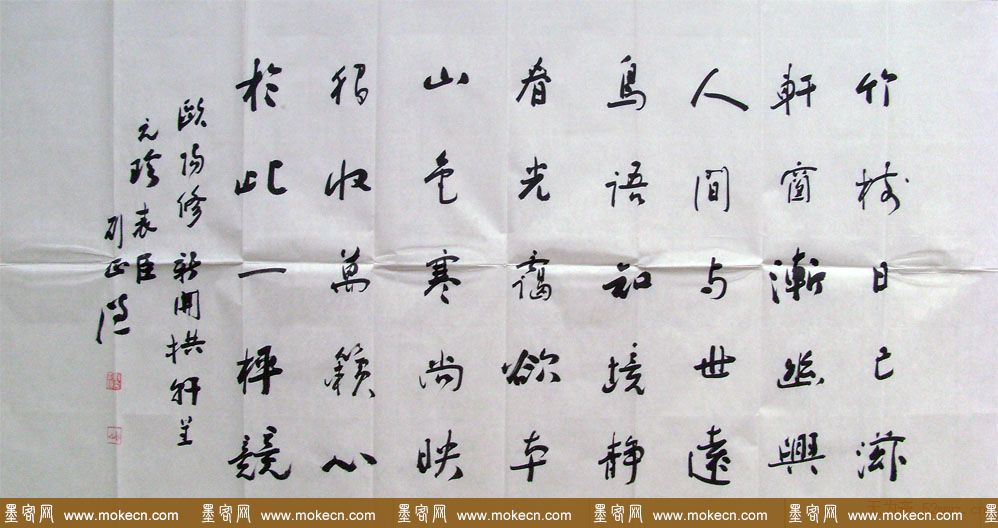 竹樹日已滋
軒窗漸幽興
人間与世遠
鳥語知境静
春光靄欲布
山色寒尚映
獨收萬籟心
於此一枰競
歐陽修 新開棋軒呈
元珍表臣
墨客网 www.mokecn.com 墨客网 www.mokecn.com 墨客网 www.mokecn.com 墨客网 www.mokecn.com 墨客网 www.mokecn.com